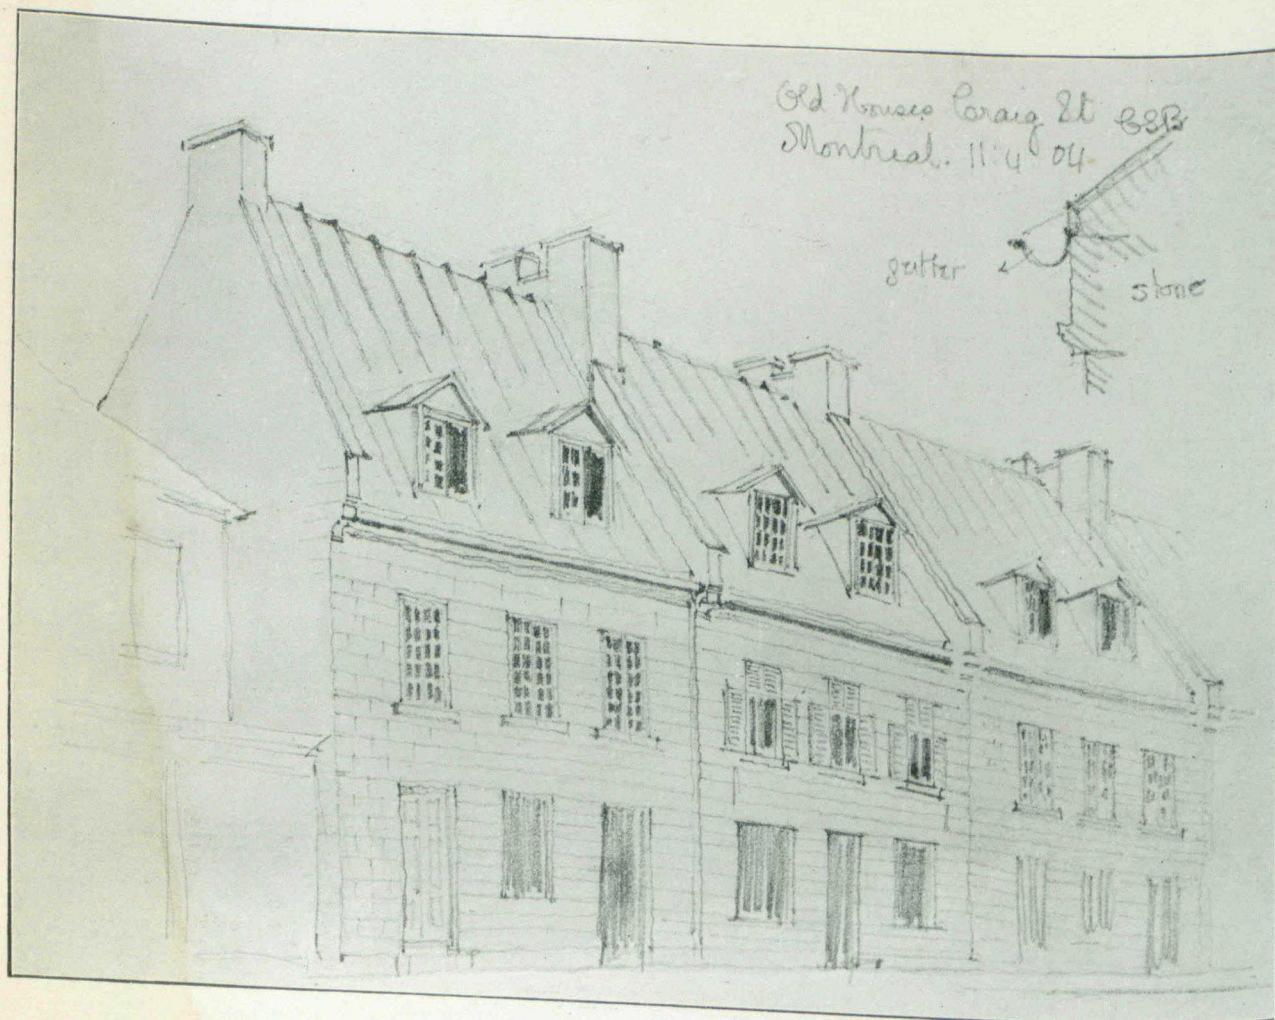 Old Houses Craig St
Montreal. 11:4 04
gutter
stone